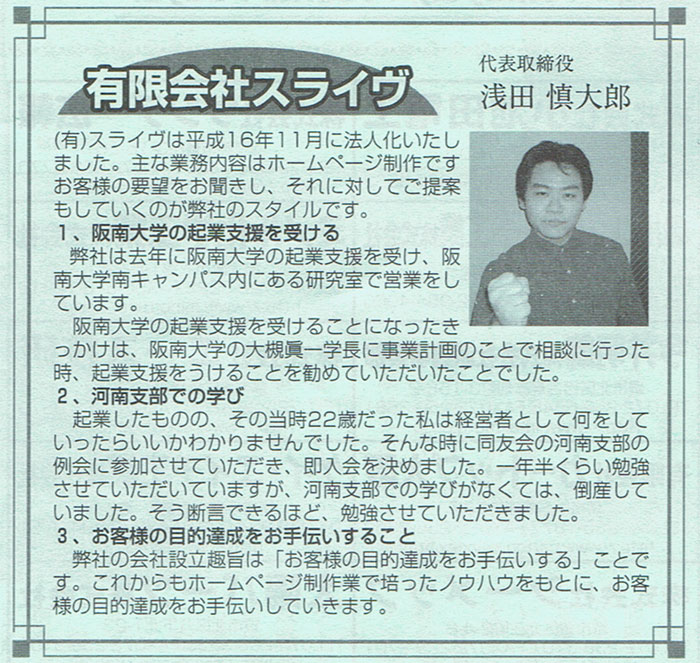 有限会社スライヴ
代表取締役
浅田 慎大郎
(有)スライヴは平成16年11月に法人化いたし
ました。主な業務内容はホームページ制作です
お客様の要望をお聞きし、それに対してご提案
もしていくのが弊社のスタイルです。
1、阪南大学の起業支援を受ける
弊社は去年に阪南大学の起業支援を受け、阪
南大学南キャンパス内にある研究室で営業をし
ています。
阪南大学の起業支援を受けることになったき
っかけは、阪南大学の大槻眞一学長に事業計画のことで相談に行った
時、起業支援をうけることを勧めていただいたことでした。
2、河南支部での学び
起業したものの、その当時22歳だった私は経営者として何をして
いったらいいかわかりませんでした。そんな時に同友会の河南支部の
例会に参加させていただき、即入会を決めました。一年半くらい勉強
させていただいていますが、河南支部での学びがなくては、倒産して
いました。そう断言できるほど、勉強させていただきました。
3、お客様の目的達成をお手伝いすること
弊社の会社設立趣旨は「お客様の目的達成をお手伝いする」ことで
す。これからもホームページ制作業で培ったノウハウをもとに、お客
様の目的達成をお手伝いしていきます。